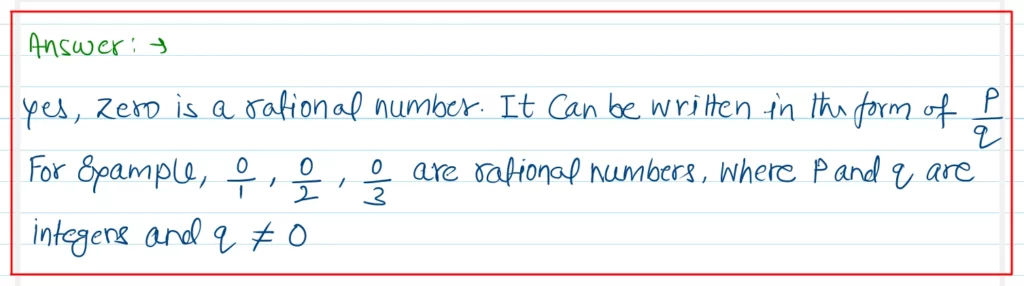 Answer: →
yes, Zero is a rational number. It Can be written in the form of P/q
For Example, 0/1, 0/2, 0/3 are rational numbers, where P and q are
integers and q ≠ 0